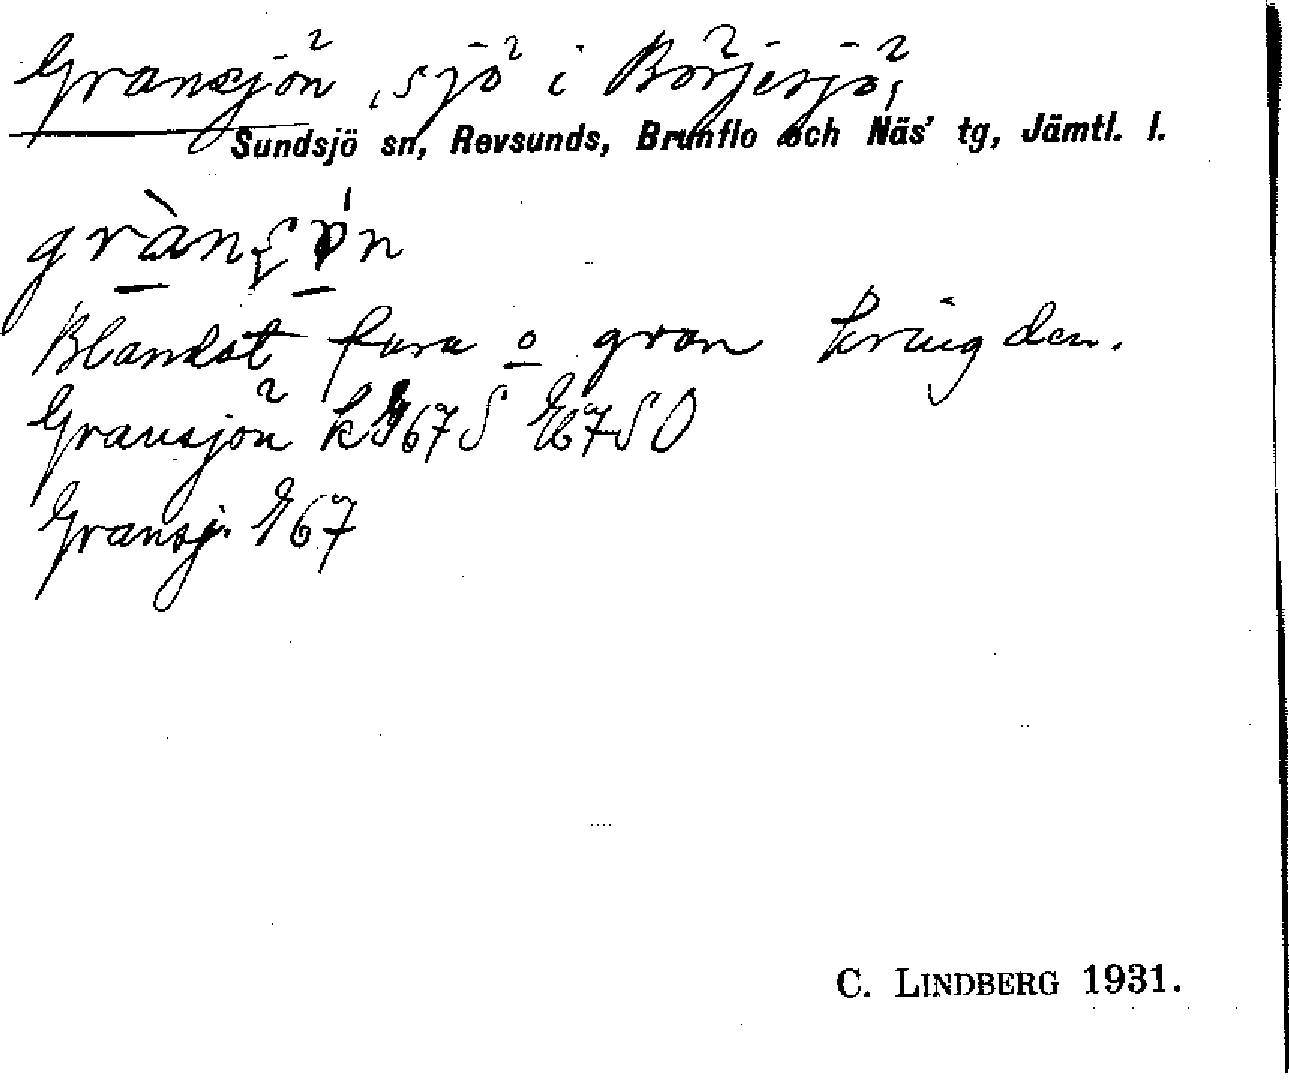 Gransjön, sjö i Börjesjö,
Sundsjö sn, Revsunds, Brunflo och Näs' tg, Jämtl. l.
Blandat fura o gran kring den.
Gransjön k G67S E67SO
Gransj. G67
C. LINDBERG 1931.